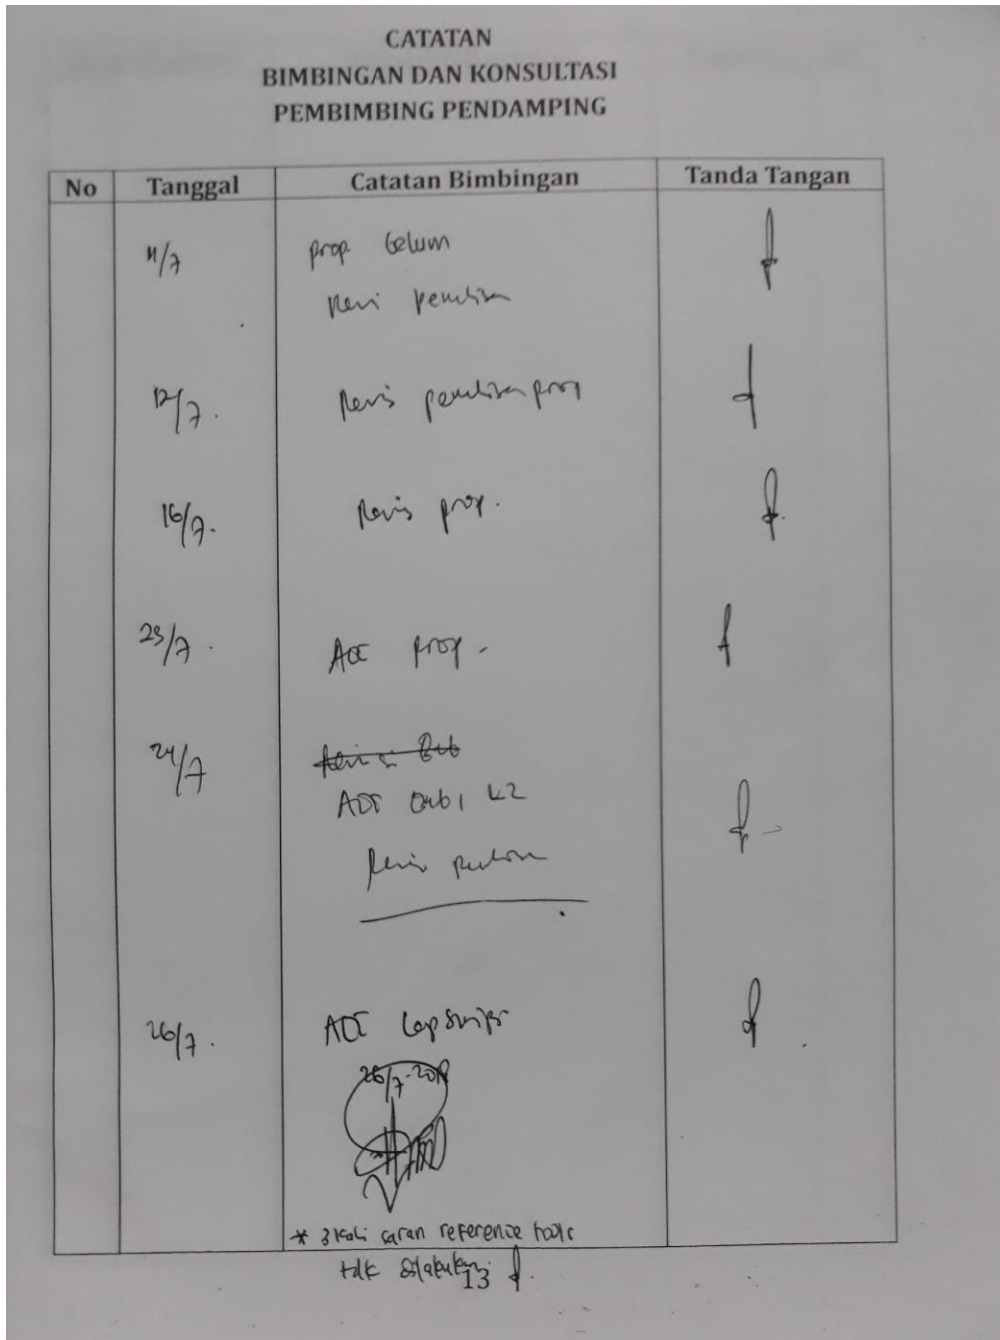 CATATAN
BIMBINGAN DAN KONSULTASI
PEMBIMBING PENDAMPING
No Tanggal Catatan Bimbingan Tanda Tangan
11/7 prop. belum
Revisi penulisan
12/7. Revisi penulisan prop
16/7. Revisi prop.
23/7. ACC prop.
24/7 Revisi Bab
ACC bab 1 &2
Revisi
26/7. ACC Lap Skripsi
26/7-2018
* 3 kali saran reference tools
tdk dilakukan.
13